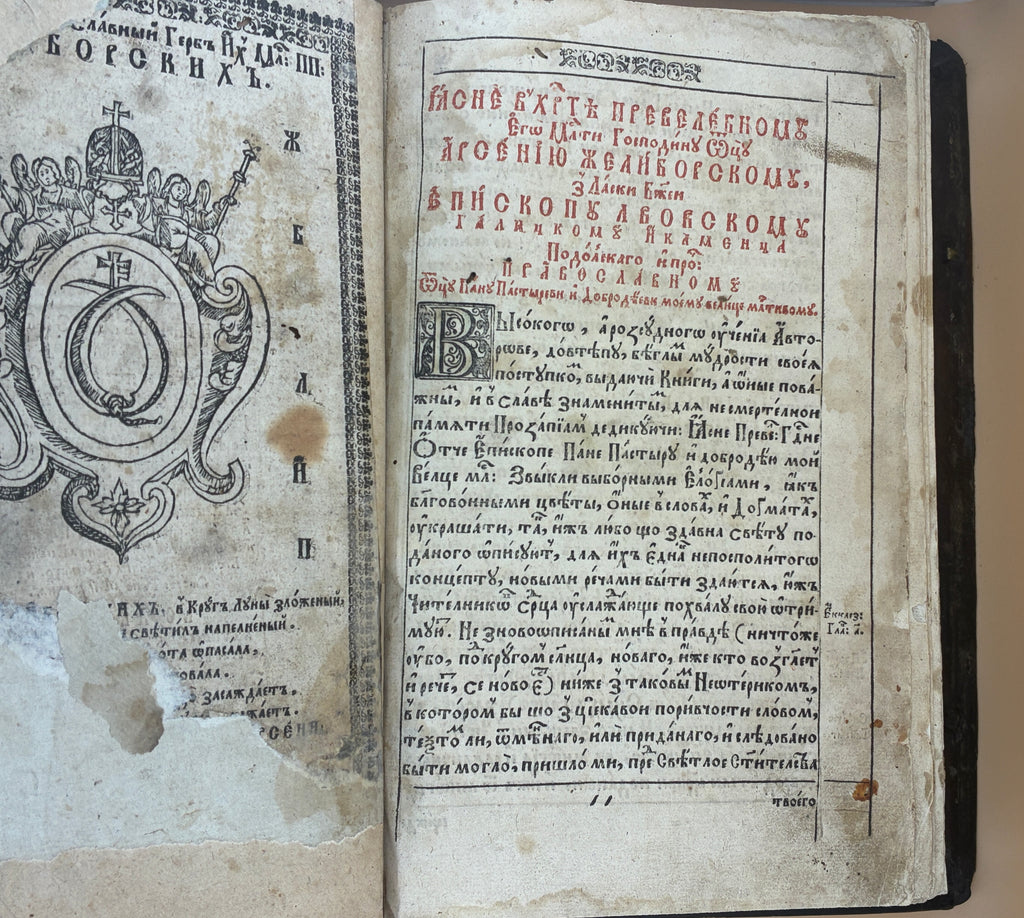 Сла́вный Гербъ И́Хъ Мл҃: ПП:
БОРСКИХЪ.
Ж
Б
Л
И
П
ИХЪ, в̾ Кругъ Луны̀ Зложеный,
Свѣти́лъ наполне́ный.
ѿпасала,
овала.
засаждаетъ.
жаетъ.
РСЕ́НИ
Ꙗ҆СНЀ В̾ ХР҃ТѢ ПРЕВЕЛЕ́БНОМУ
Е҆гѡ̀ Мл҃ти Господи́ну Ѿц҃у
А҆РСЕ́НІЮ ЖЕЛИ́БОРСКОМУ,
З̾ Ла́ски Бж҃еи
Е҆ПИ́СКОПУ ЛВОВСКОМУ
ГА́ЛИЦКОМУ И҆ КАМЕНЦА
Подо́лскаго и҆ про́:
ПРАВОСЛА́ВНОМУ
Ѿц҃у Па́ну Па́стыреви и҆ Добродѣеви моему̀ велце мл҃тивому.
ВЫСо́когѡ, а҆ розсу́дного ѹ҆че́нїа А҆́вто-
рѡве, до́втѣпу, бѣ́глы мудрости свое́ѧ
по́ступкѡ, выдаючѝ Кни́ги, а҆ ѡ҆́ные пова́-
жны, и҆ в̾ сла́вѣ знамени́ты, для несмерте́лнои
па́мяти Проза́пїам дедику́ючи: Ꙗ҆сне Преве: Гд҃не
Ѻ҆́тче Е҆пи́скопе Па́не Па́стыру и҆ добродѣ́ю мой
ве́лце мл҃: Звы́кли выбо́рными Е҆ло́ґїами, ꙗ҆́къ
блг҃ово́нными цвѣ́ты, Ѻ҆ные в̾ слова, и҆ До́ґмата,
ѹ҆краша́ти, та, и҆́жъ лю́бо що зда́вна свѣ́ту по-
да́ного ѡ҆пису́ю, для и҆́хъ е҆дна́ непосполи́того
конце́пту, но́выми рѣ́чами бы́ти здаю́тся, и҆́жъ
Чите́лникѡ ср҃ца ѹ҆слажа́юще похва́лу свои ѡ҆три́-
мую. Не зно́во ѡ҆писаны мнѣ̀ в̾ пра́вдѣ (ничто́же
ѹ҆́бо, под кру́гом сл҃нца, но́ваго, и҆́же кто возгл҃ет
и҆ рече, се но́во е҆) ни́же з̾ такóвы Неѡ҆те́рикомъ,
в̾ кото́ром бы що з̾ ц҆ѣка́вои пори́вчости сло́вом,
те́зто ли, ѿмѣ́ннаго, и҆лѝ прида́наго, и҆ слѣ́довано
бы́ти могло̀, пришло́ ми, пре Свѣ́тлое Ст҃и́телства
твоегѡ
Е҆кклез:
Гла: а҃.